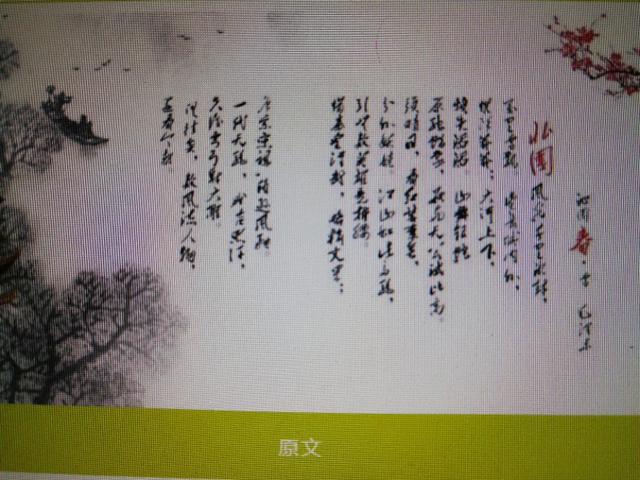 沁园春 雪 毛泽东
北国风光,千里冰封,
万里雪飘。望长城内外,
惟余莽莽;大河上下,
顿失滔滔。山舞银蛇
原驰蜡象,欲与天公试比高。
须晴日,看红装素裹,
分外妖娆。江山如此多娇,
引无数英雄竞折腰。
惜秦皇汉武,略输文采;
唐宗宋祖,稍逊风骚。
一代天骄,成吉思汗,
只识弯弓射大雕。
俱往矣,数风流人物,
还看今朝。
原文